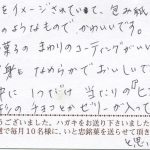 をイメージされていて、包み紙
のようなものでかわいいです。
菓子のまわりのコーティングがいい
なめらかでおいしいで
中に1つだけ当たりの「ピ
のチョコとゼリーが入って
うございました。ハガキをお送り下さいました
で毎月10名様に、いと忠銘菓を送らせて頂き
と思い